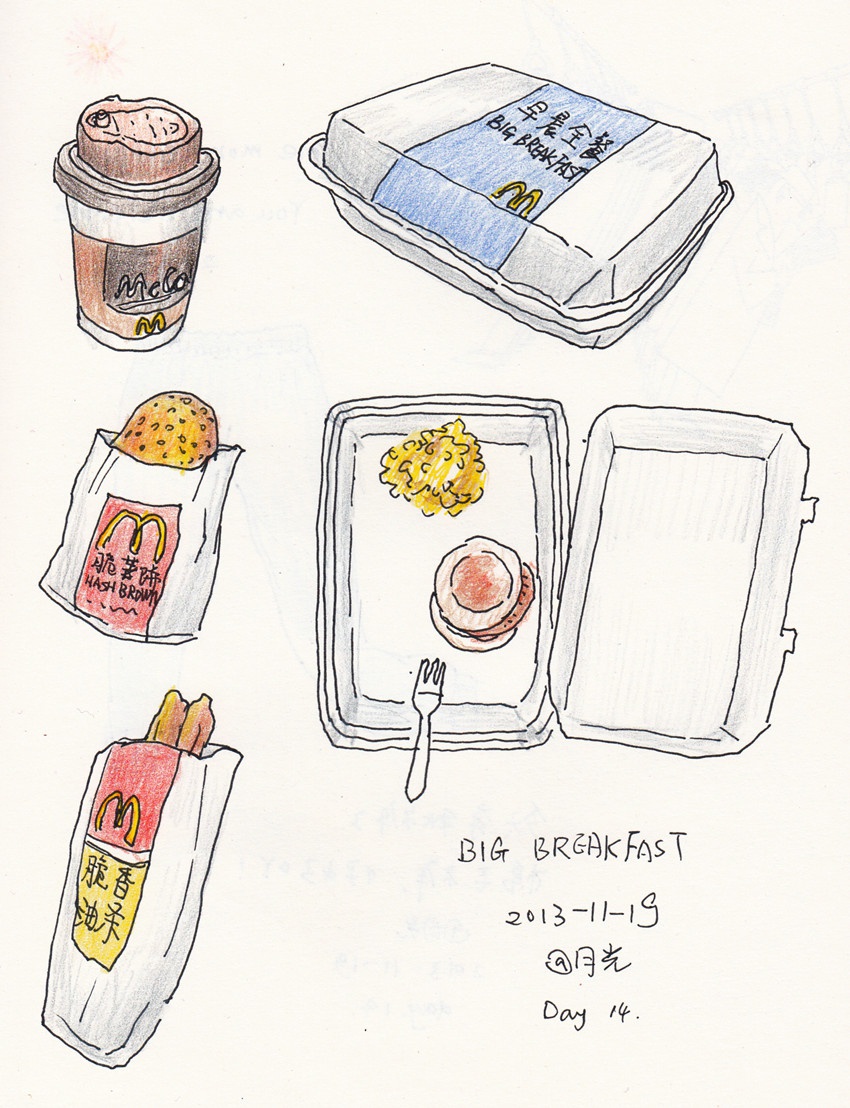 早晨全餐
BIG BREAKFAST
McCa
脆薯饼
HASH BROWN
脆香
油条
BIG BREAKFAST
2013-11-19
@月光
Day 14.